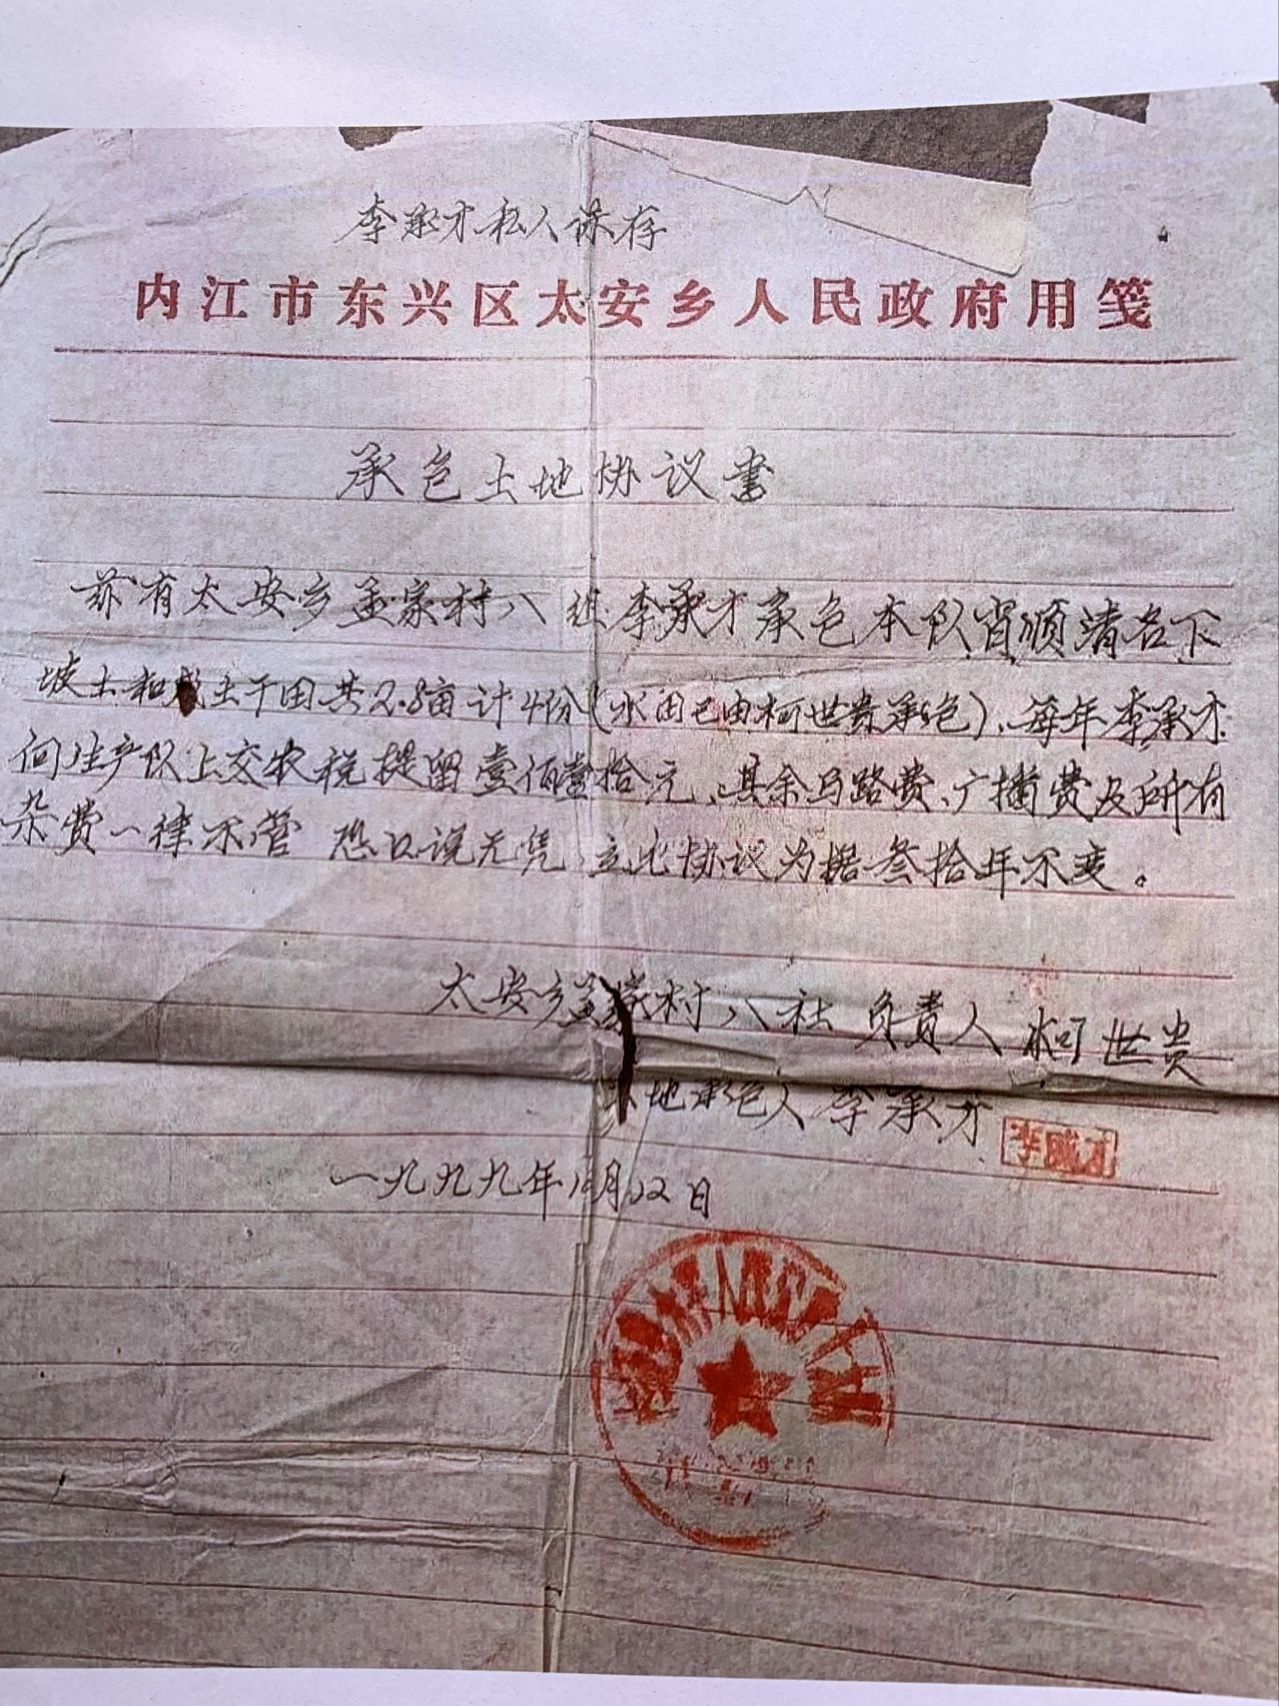 李承才私人保存
内江市东兴区太安乡人民政府用笺
承包土地协议书
兹有太安乡孟家村八组李承才承包本队肖顺清名下
坡土和成土干田共2.8亩计4份(水田已由柯世贵承包)、每年李承才
向生产队上交农税提留壹佰壹拾元、其余马路费、广播费及所有
杂费一律不管 恐口说无凭 立此协议为据叁拾年不变。
太安乡孟家村八社 负责人 柯世贵
地承包人 李承才
李承才
一九九九年 月12日